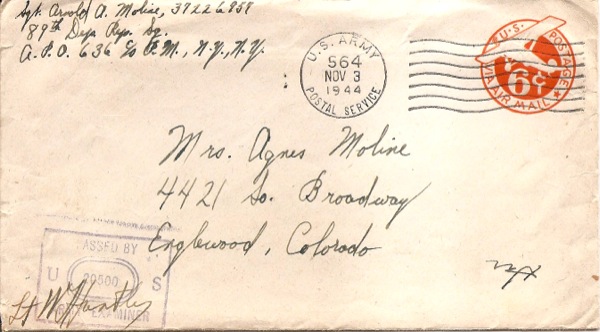 Sgt. Arvold A. Moline, 37226858
89th Dep. Rep. Sq.
A.P.O. 636 c/o P.M., N.Y., N.Y.
U.S. ARMY
564
NOV 3
1944
POSTAL SERVICE
U.S. POSTAGE
6¢
VIA AIR MAIL
Mrs. Agnes Moline
4421 So. Broadway
Englewood, Colorado
PASSED BY
U 20500 S
ARMY EXAMINER
Lt W Huntley